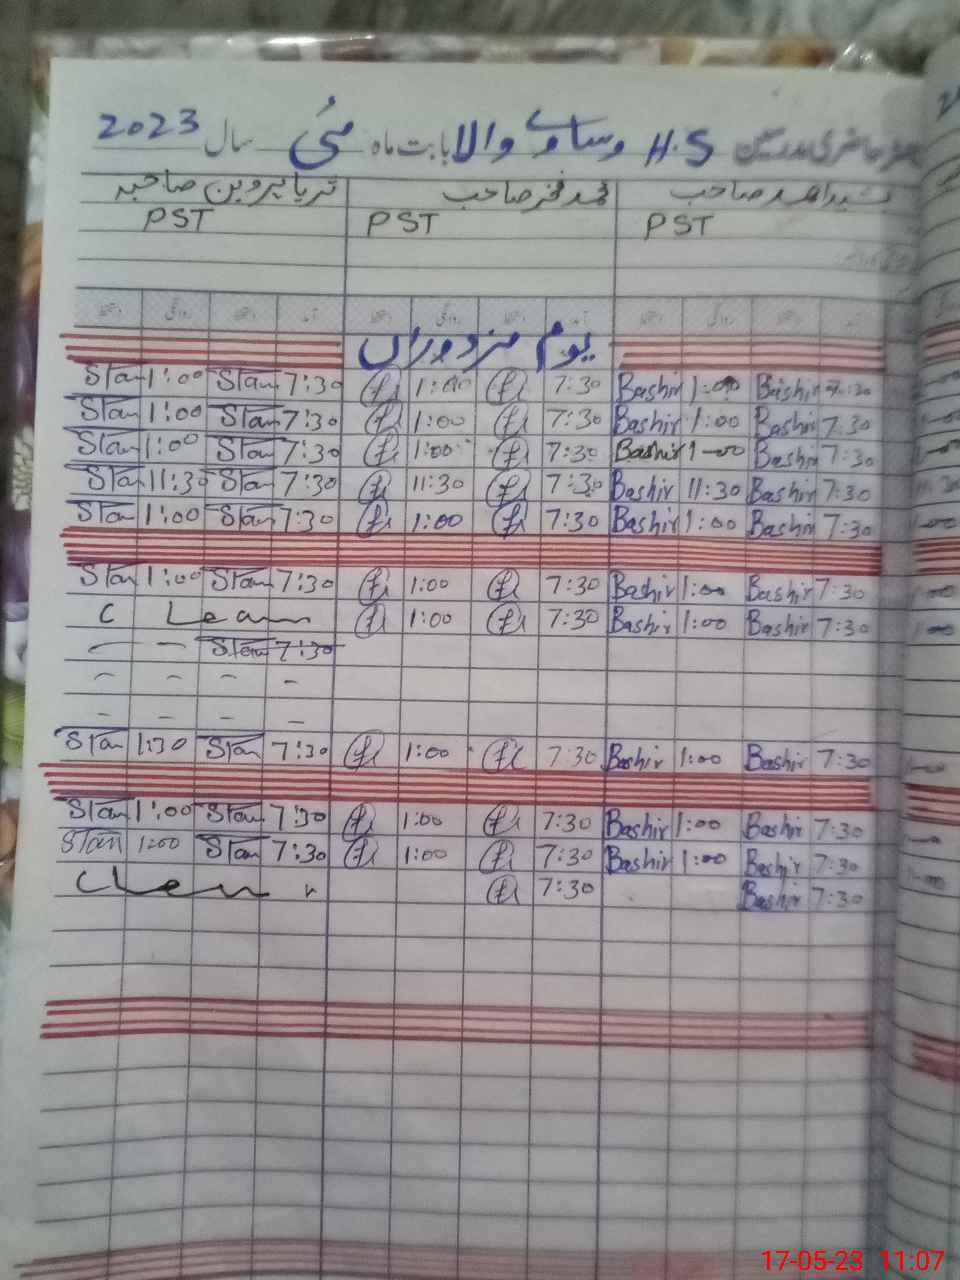 حاضری مدرسین H.S وساوے والا بابت ماہ مئی سال 2023
بشیر احمد صاحب محمد فخر صاحب ثریا پروین صاحبہ
PST PST PST
یوم مزدوراں
Stan 1:00 Stan 7:30 1:00 7:30 Bashir 1:00 Bashir 7:30
Stan 1:00 Stan 7:30 1:00 7:30 Bashir 1:00 Bashir 7:30
Stan 1:00 Stan 7:30 1:00 7:30 Bashir 1-00 Bashir 7:30
Stan 11:30 Stan 7:30 11:30 7:30 Bashir 11:30 Bashir 7:30
Stan 1:00 Stan 7:30 1:00 7:30 Bashir 1:00 Bashir 7:30
Stan 1:00 Stan 7:30 1:00 7:30 Bashir 1:00 Bashir 7:30
C Lean 1:00 7:30 Bashir 1:00 Bashir 7:30
— — Stan 7:30
– – – –
– – – –
Stan 1:30 Stan 7:30 1:00 7:30 Bashir 1:00 Bashir 7:30
Stan 1:00 Stan 7:30 1:00 7:30 Bashir 1:00 Bashir 7:30
Stan 1:00 Stan 7:30 1:00 7:30 Bashir 1:00 Bashir 7:30
7:30 Bashir 7:30
17-05-23 11:07